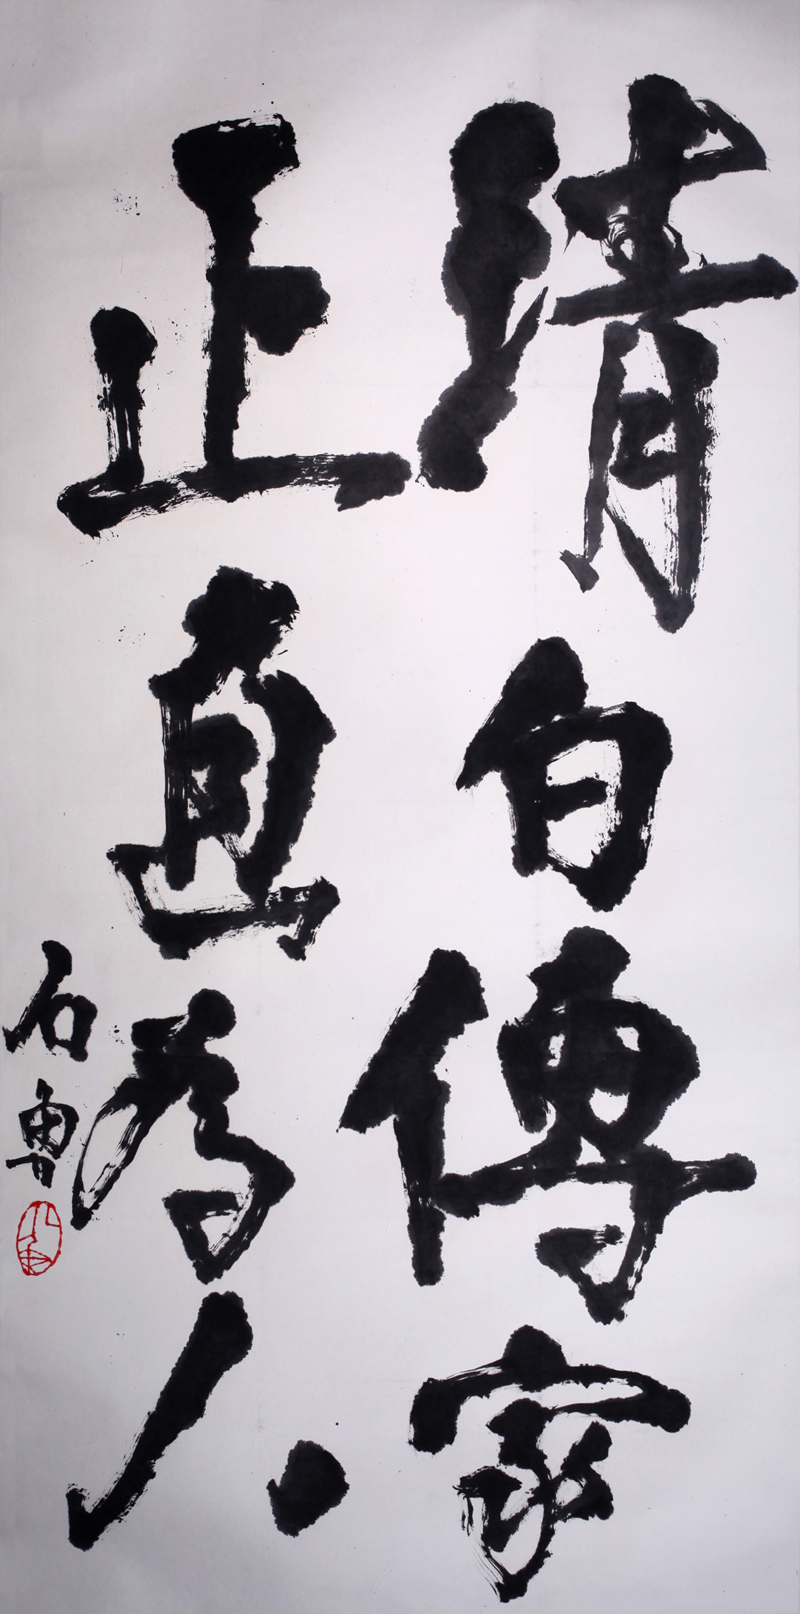 清白傳家
正直為人
石魯